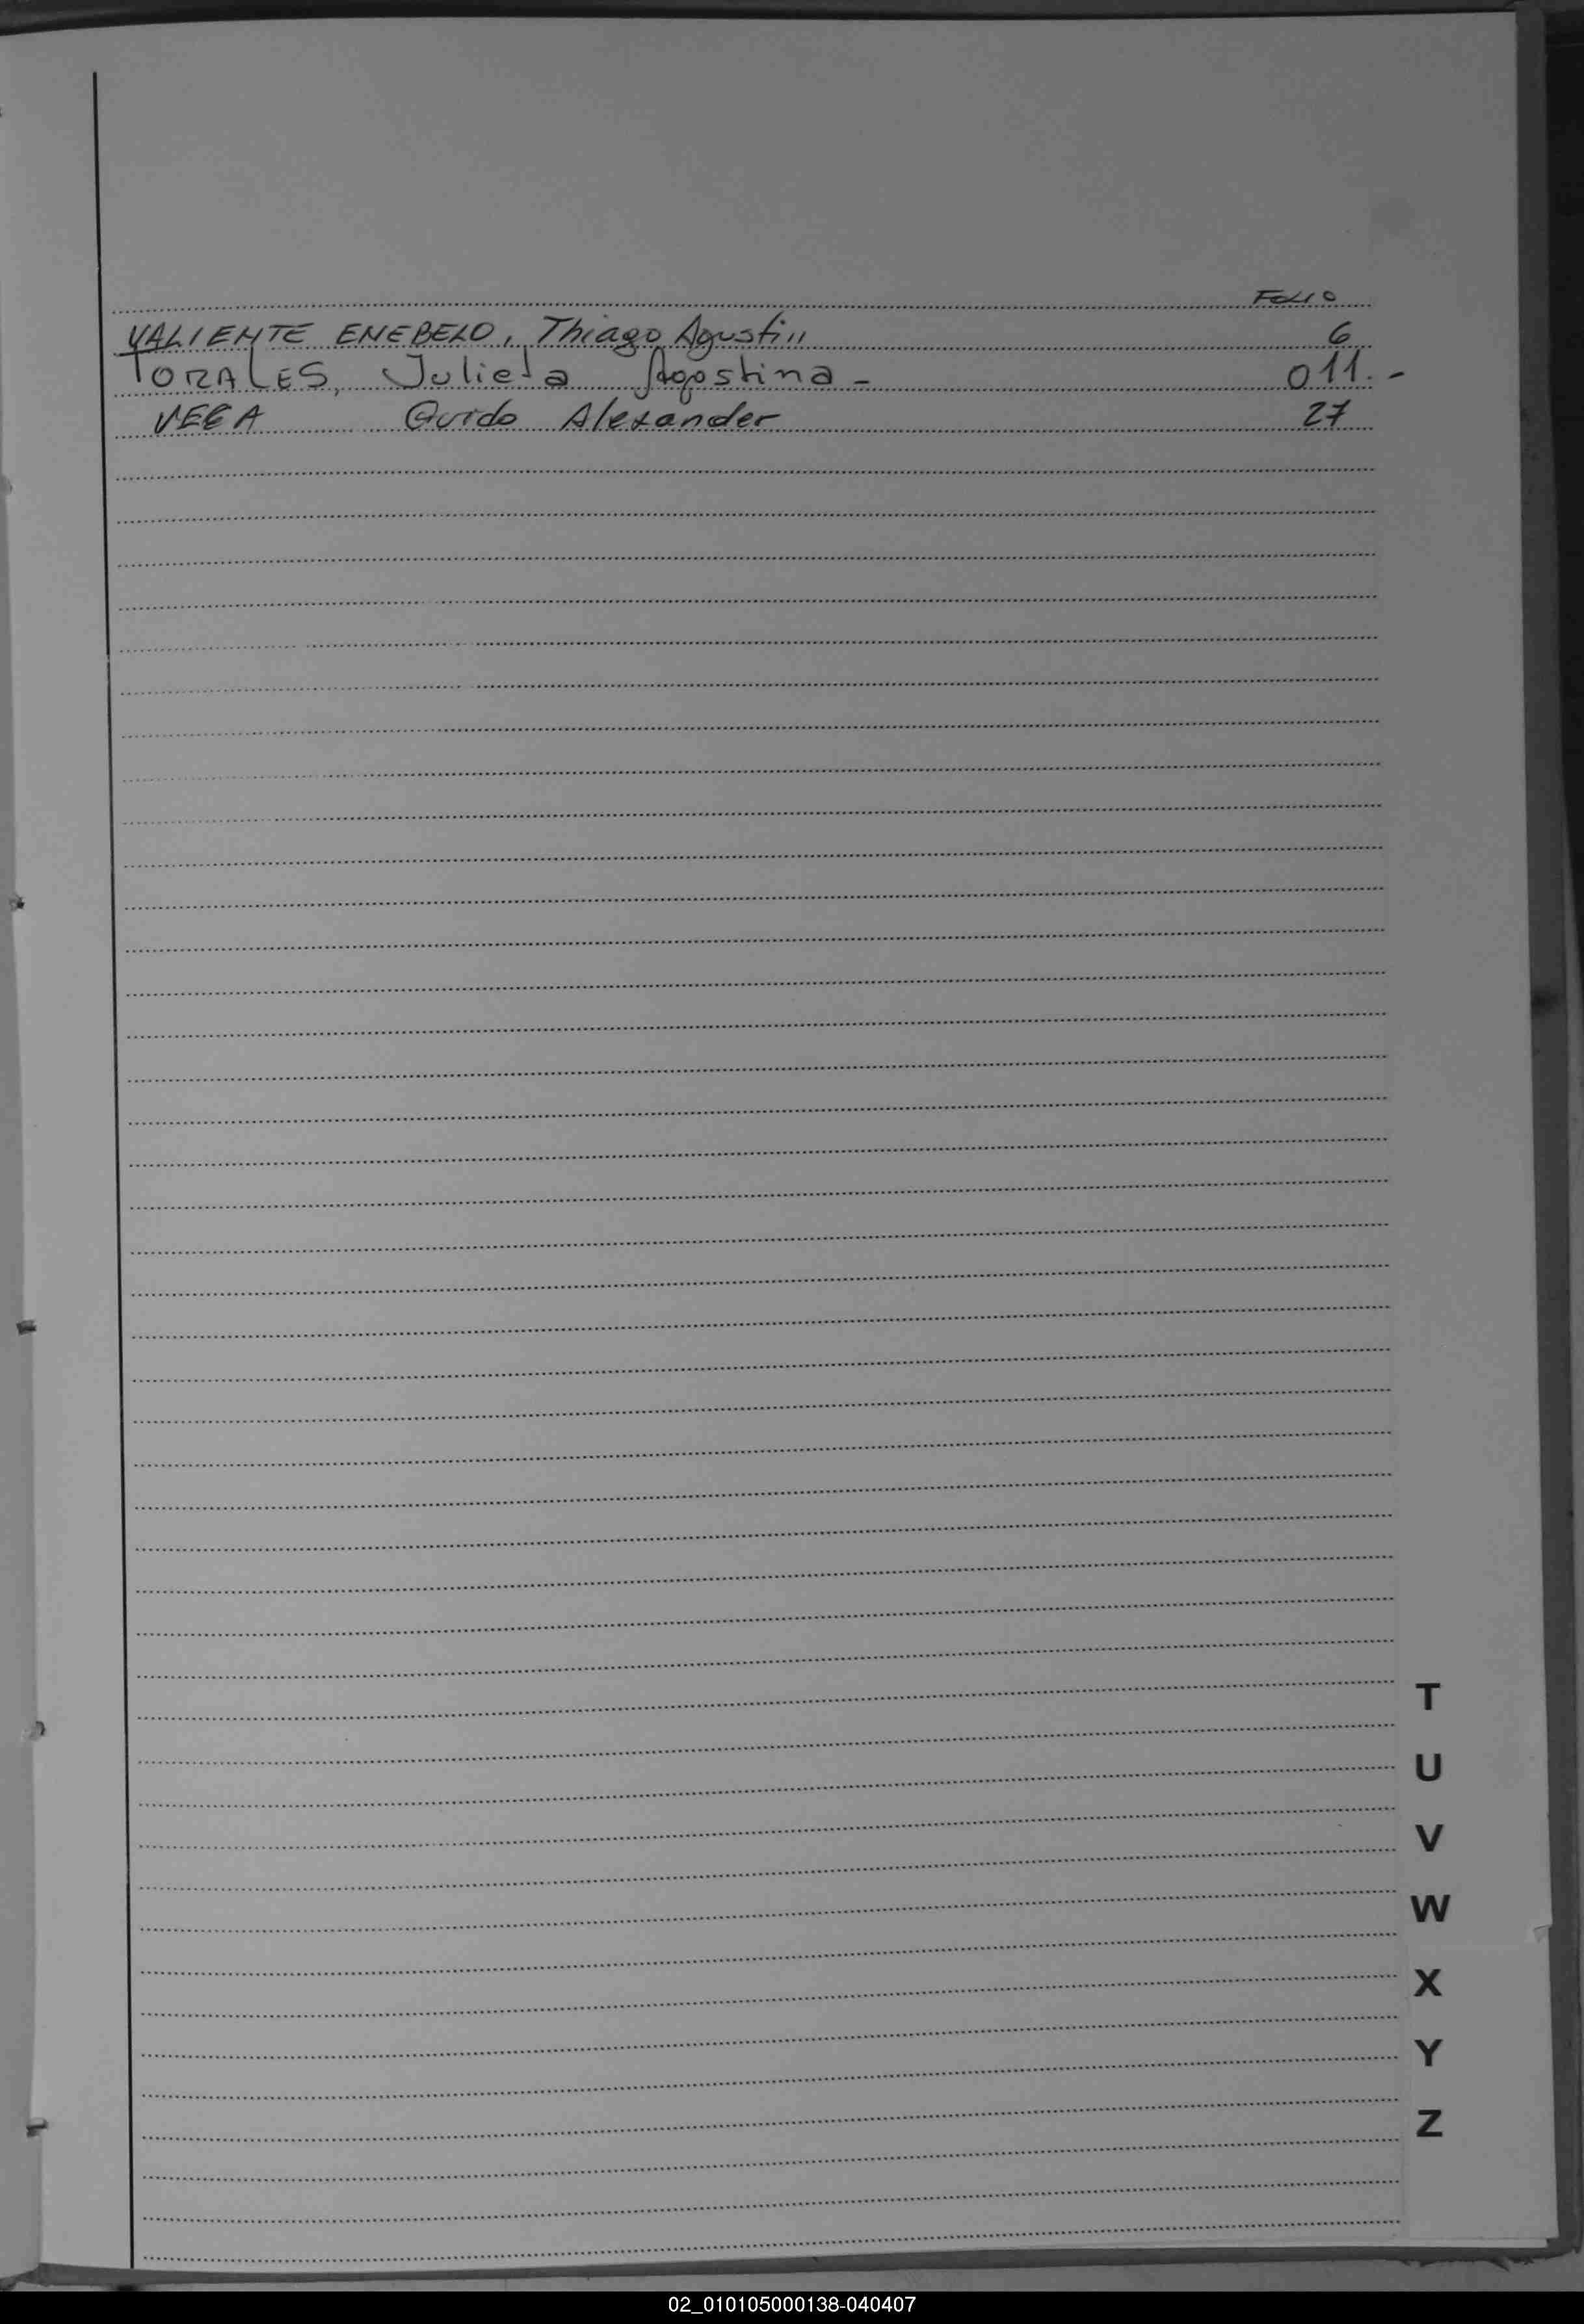 FOLIO
VALIENTE ENEBELO, Thiago Agustin 6
TORALES, Julieta Agostina - 011.-
VEGA Guido Alexander 27
T
U
V
W
X
Y
Z
02_010105000138-040407